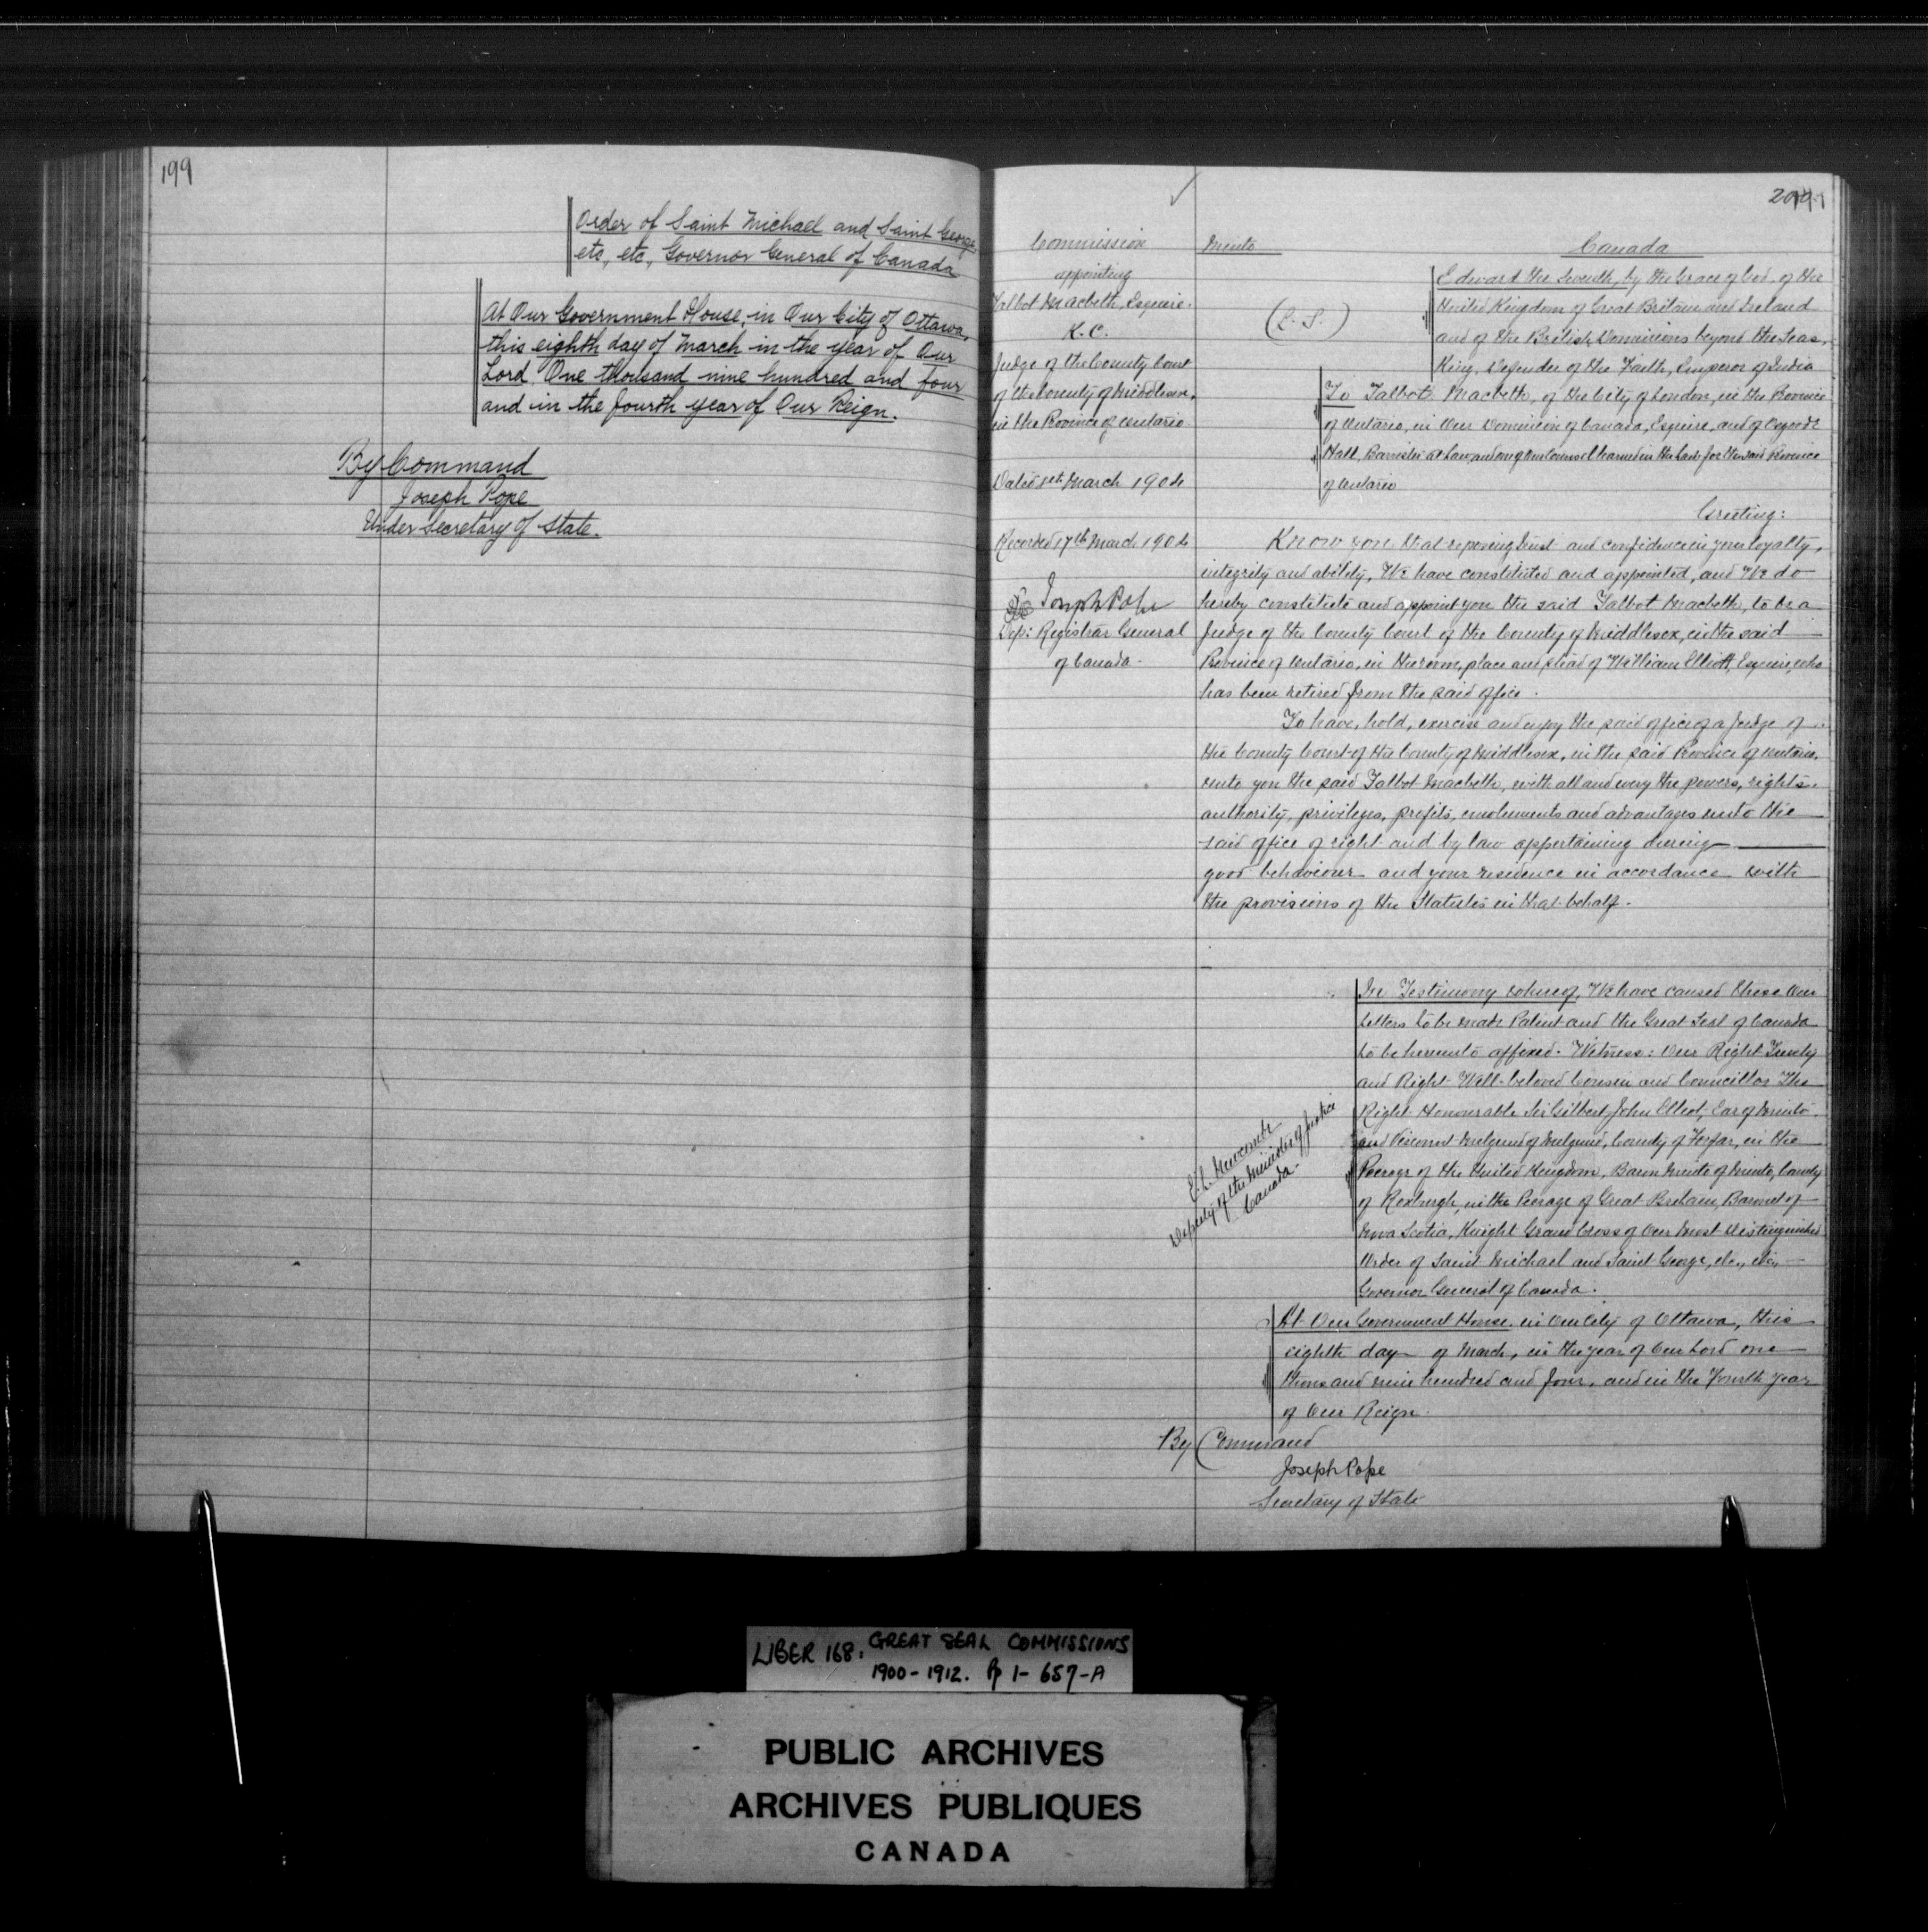 199
Order of Saint Michael and Saint George,
etc, etc, Governor General of Canada
At Our Government House, in Our City of Ottawa,
this eighth day of March in the year of Our
Lord One thousand nine hundred and four
and in the fourth year of Our Reign.
By Command
Joseph Pope
Under Secretary of State.
Commission
appointing
Talbot Macbeth, Esquire.
K.C.
Judge of the County Court
of the County of Middlesex,
in the Province of Ontario
Dated 8th March 1904
Recorded 17th March 1904
Joseph Pope
Dep: Registrar General
of Canada.
Minto
Canada
(L.S.)
Edward the Seventh, by the Grace of God, of the
United Kingdom of Great Britain and Ireland
and of the British Dominions beyond the Seas,
King, Defender of the Faith, Emperor of India
To Talbot Macbeth, of the City of London, in the Province
of Ontario, in Our Dominion of Canada, Esquire, and of Osgoode
Hall, Barrister at Law, and one of Our Counsel learned in the Law for the said Province
of Ontario
Greeting:
Know you that reposing trust and confidence in your loyalty,
integrity and ability, We have constituted and appointed, and We do
hereby constitute and appoint you the said Talbot Macbeth, to be a
Judge of the County Court of the County of Middlesex, in the said
Province of Ontario, in the room, place and stead of William Elliott, Esquire, who
has been retired from the said office.
To have, hold, exercise and enjoy the said office of a Judge of
the County Court of the County of Middlesex, in the said Province of Ontario,
unto you the said Talbot Macbeth, with all and every the powers, rights,
authority, privileges, profits, emoluments and advantages unto the
said office of right and by law appertaining during
good behaviour and your residence in accordance with
the provisions of the Statutes in that behalf.
In Testimony whereof, We have caused these Our
Letters to be made Patent and the Great Seal of Canada
to be hereunto affixed. Witness: Our Right Trusty
and Right Well-beloved Cousin and Councillor The
Right Honourable Sir Gilbert John Elliot, Earl of Minto
and Viscount Melgund of Melgund, County of Forfar, in the
Peerage of the United Kingdom, Baron Minto of Minto, County
of Roxburgh, in the Peerage of Great Britain, Baronet of
Nova Scotia, Knight Grand Cross of Our Most Distinguished
Order of Saint Michael and Saint George, etc., etc.,
Governor General of Canada.
E.L. Newcombe
Deputy of the Minister of Justice
Canada.
At Our Government House, in Our City of Ottawa, this
eighth day of March, in the year of Our Lord one
thousand nine hundred and four, and in the Fourth year
of Our Reign.
By Command
Joseph Pope
Secretary of State
LIBER 168: GREAT SEAL COMMISSIONS
1900-1912. Pp 1-657-A
PUBLIC ARCHIVES
ARCHIVES PUBLIQUES
CANADA